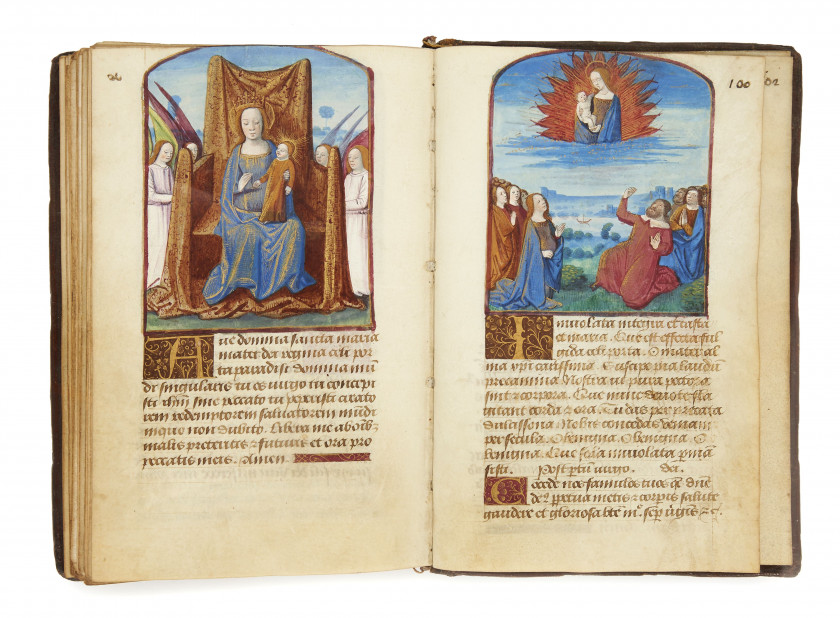 Ave domina sancta maria
mater dei regina celi por
ta paradisi domina mun
di singularis tu es virgo tu concepi
sti ihm sine peccato tu peperisti creato
rem redemptorem saluatorem mundi
in quo non dubito. Libera me ab omib
malis preteritis et futuris et ora pro
peccatis meis. Amen
100
102
Inuiolata integra et casta
es maria. Que es effecta ful
gida celi porta. O mater al
ma xpi carissima. Suscipe pia laudum
precamina. Nostra ut pura pectora
sint et corpora. Que nunc deuota fla
gitant corda et ora. Tu das per precata
dulcisona. Nobis concedas veniam
per secula. O benigna. O benigna. O
benigna. Que sola inuiolata perman
sisti. Post ptu virgo.
Concede nos famulos tuos qs dne
de? perpetua mentis et corpis salute
gaudere et gloriosa bte m. semp virgis